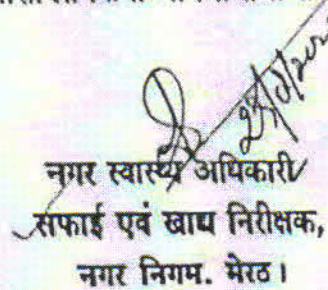 नगर स्वास्थ्य अधिकारी
सफाई एवं खाद्य निरीक्षक,
नगर निगम. मेरठ।